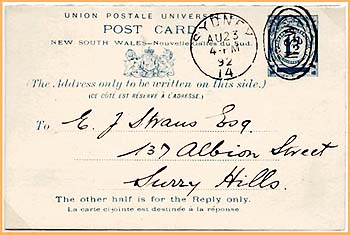 UNION POSTALE UNIVERSELLE
POST CARD
NEW SOUTH WALES–Nouvelle Galles du Sud.
SYDNEY
AU23
4- PM
92
14
(The Address only to be written on this side.)
(CE CÔTÉ EST RÉSERVÉ À L'ADRESSE.)
To E. J Straus Esq.
137 Albion Street
Surry Hills.
The other half is for the Reply only.
La carte ci jointe est destinée à la réponse